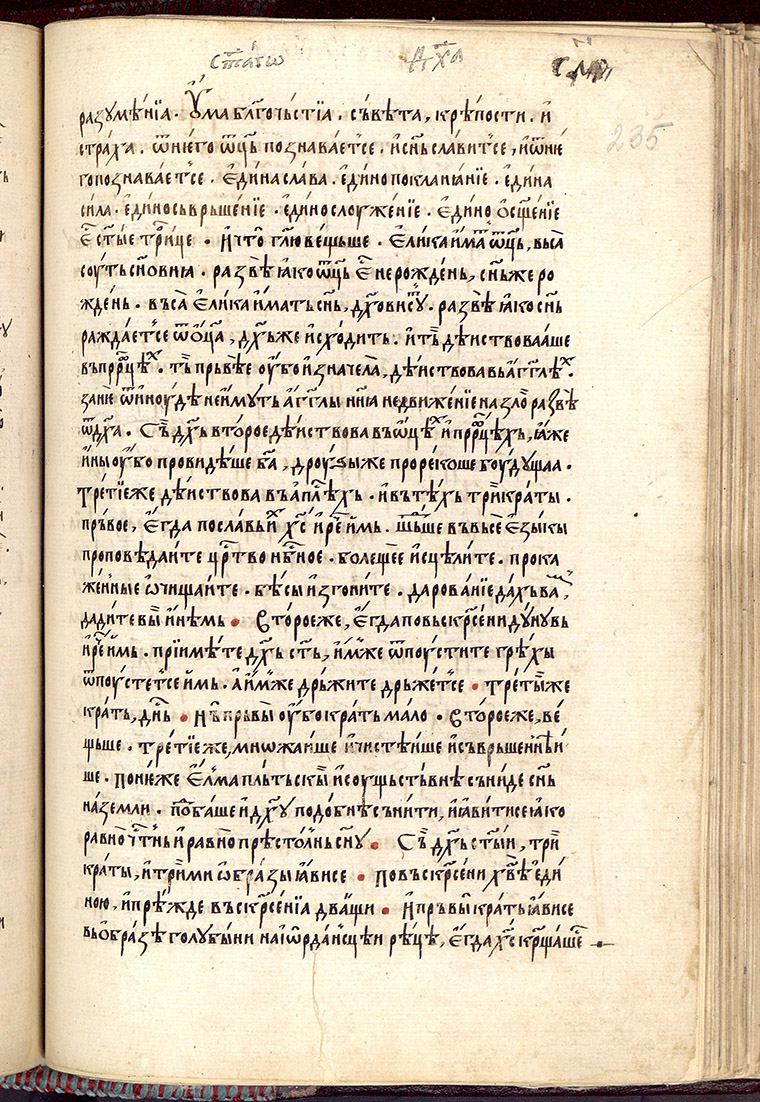 с҃таго д҃ха
235
разумѣнїа. Ума бл҃гочьстїа. съвѣта, крѣпости. и
страха. ѿ него ѿц҃ь познаваетсе. и сн҃ь славитсе, и ѿ нѥ
го познаваетсе. Едина слава. едино покланꙗнїе. едина
сила. едино съврьшенїе. едино слоуженїе. Едино ос҃щенїе
Е с҃тые трⷪ҇ице. И что гл҃ю вещьше. Елика има ѿц҃ь, въса
соуть сн҃овнꙗ. развѣ ꙗко ѿц҃ь Е нерождень, сн҃ь же ро
ждень. въса Елика имать сн҃ь, д҃ховисту. развѣ ꙗко сн҃ь
раждаетсе ѿ оц҃а, д҃хь же исходить. и тъ дѣиствовааше
въ пррⷪ҇цѣⷯ. тъ прьвѣе оубо изначела, дѣиствова вь аг҃глѣⷯ.
занѥ ѿиноудѣ не имуть аг҃глы нн҃ꙗ недвиженїе на зло развѣ
ѿ д҃ха. Съ д҃хь второе дѣиствова въ ѿцѣⷯ и пррⷪ҇цѣхь, ꙗже
ины оубо провидѣше б҃а, дроуѕыже прорекоше боудущаа.
третїеже дѣиствова въ апⷭ҇лѣхь. и въ тѣхь три краты.
прьвое, егда посла вьи х҃с и реⷱ҇ имь. шⷣьше въ въсе езыкы
проповѣдаите црⷭ҇тво нбⷭ҇ное. болещее исцѣлите. прока
женные ѡчищаите. бѣсы изгоните. дарованїе дахь ваⷨ,
дадите вы инѣмь. Второеже, Егда по въскрⷭ҇ени дунувь
и реⷱ҇ имь. прїимѣте д҃хь с҃ть, имже ѿпоустите грѣхы
ѿпоустетсе имь. А имже дрьжите дрьжетсе. третыиже
крать, днⷭ҇ь. Нъ прьвы оубо крать мало. Второеже, ве
щьше. третїеже, мнѡжаише и чистѣише и съврьшеннѣи
ше. Понѥже Елма пльтьскы и соущьствнѣ съниде сн҃ь
на земли. Побаше и д҃ху подобнѣ сънити, и ꙗвитисе ꙗко
равночⷭ҇тнь и равнопрѣстолнь сн҃у. Съ д҃хь с҃тыи, три
краты, и трими ѡбразы ꙗвисе. По въскрⷭ҇ени х҃вѣ еди
ною, и прѣжде въскрⷭ҇енїа дващи. И прьвы крать ꙗвисе
вь образѣ голубыни на іѡрданⷭ҇цѣи рѣцѣ, егда х҃с кр҃щаше